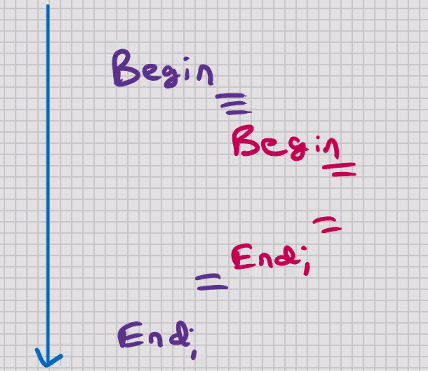 Begin
Begin
End;
End;